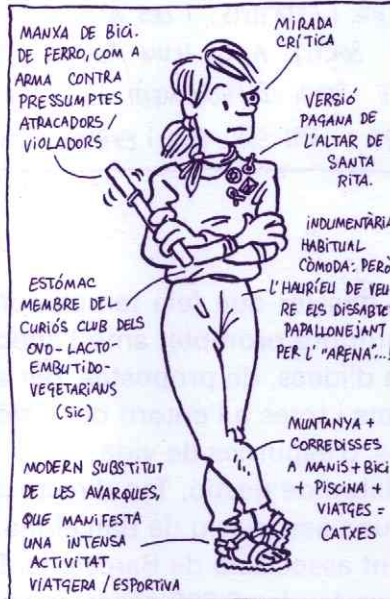 MANXA DE BICI.
DE FERRO, COM A
ARMA CONTRA
PRESSUMPTES
ATRACADORS/
VIOLADORS
MIRADA
CRÍTICA
VERSIÓ
PAGANA DE
L'ALTAR DE
SANTA
RITA.
INDUMENTÀRIA
HABITUAL
CÒMODA: PERÒ
L'HAURÍEU DE VEU-
RE ELS DISSABTES
PAPALLONEJANT
PER L'"APENA"...!
ESTÓMAC
MEMBRE DEL
CURIÓS CLUB DELS
OVO-LACTO-
EMBUTIDO-
VEGETARIANS
(sic)
MUNTANYA +
CORREDISSES
A MANIS + BICI
+ PISCINA +
VIATGES =
CATXES
MODERN SUBSTITUT
DE LES AVARQUES,
QUE MANIFESTA
UNA INTENSA
ACTIVITAT
VIATGERA / ESPORTIVA